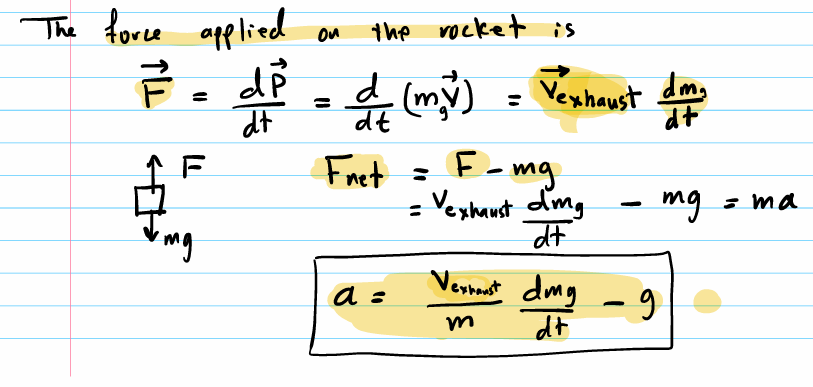 The force applied on the rocket is
F⃗ = dP⃗/dt = d/dt (m_g V⃗) = V⃗_exhaust dm_g/dt
F F_net = F - mg
= V_exhaust dm_g/dt - mg = ma
mg
a = V_exhaust/m dm_g/dt - g